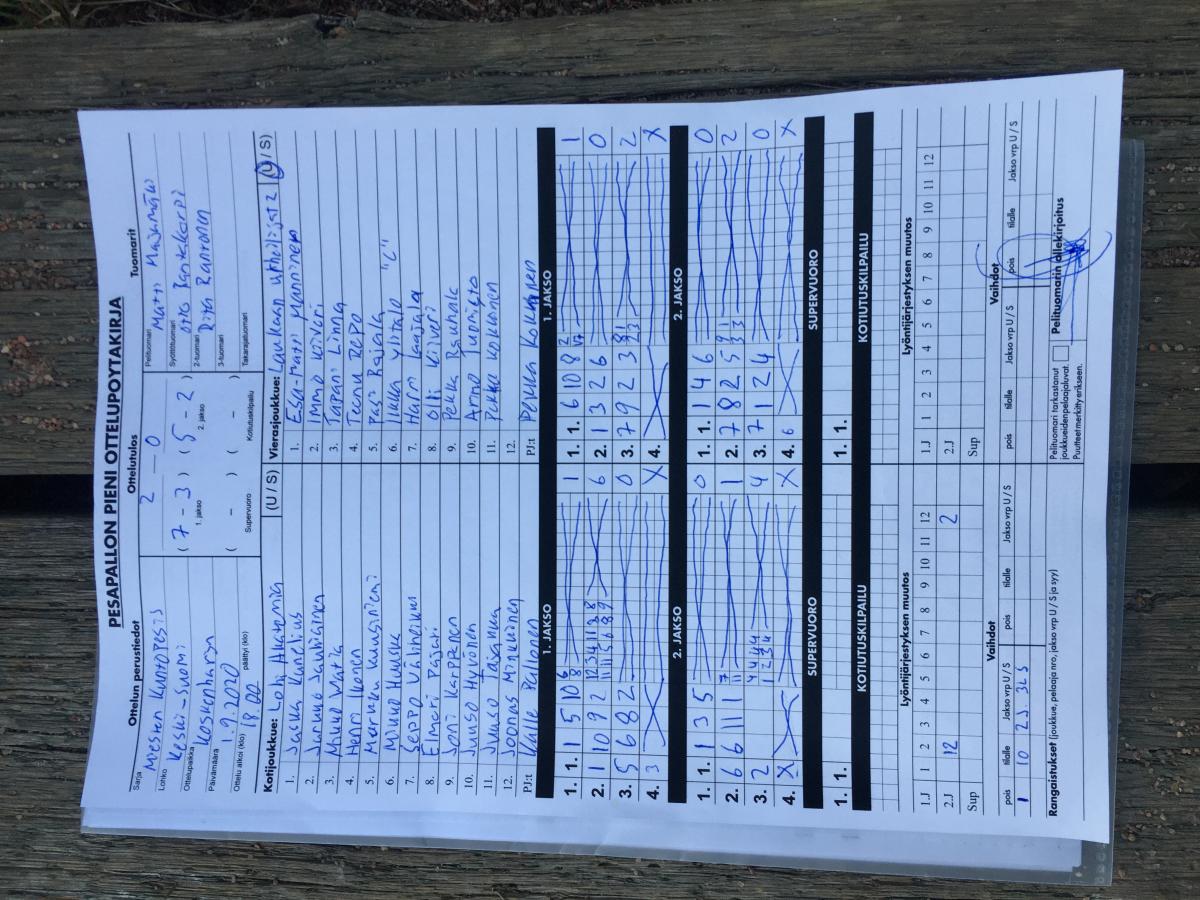 PESÄPALLON PIENI OTTELUPÖYTÄKIRJA
Ottelun perustiedot
Sarja
Miesten Kuntopesis
Lohko
Keski-Suomi
Ottelupaikka
Koskenharju
Päivämäärä
1.9.2020
Ottelu alkoi (klo) 18.00 päättyi (klo)
Ottelutulos
2 – 0
(7 – 3) (5 – 2)
1. jakso 2. jakso
( – ) ( – )
Supervuoro Kotiutuskilpailu
Tuomarit
Pelituomari
Matti
Syöttötuomari
Otto
2-tuomari
Rantanen
3-tuomari
Takarajatuomari
Kotijoukkue: Lohi Akatemia (U / S)
1. Jaska Kanelius
2. Jarkko Savliainen
3. Mikko Watia
4. Henri Ikonen
5. Markku Kuusiniemi
6. Mikko Huuska
7. Seppo Väliheikki
8. Elmeri Pajari
9. Joni Karppinen
10. Juuso Hyvönen
11. Juuso Tajakka
12. Joonas Minkkinen
PJ:t Kalle Pallonen
Vierasjoukkue: Laukaan urheilijat 2 (U / S)
1. Esa-Matti Manninen
2. Immo Kiiveri
3. Tapani Linna
4. Teemu Reppo
5. Pasi Rajala
6. Ilkka Ylitalo "C"
7. Harri Laajala
8. Olli Kiiveri
9. Pekka Rauhala
10. Armo Tuomisto
11. Pekka Kokkonen
12.
PJ:t Pekka Kokkonen
1. JAKSO 1. JAKSO
1. 1. 1 5 10 6 8 1
2. 1 10 9 2 12 3 4 11 3 8 6
3. 5 6 8 2 0
4. 3 X
1. 1. 1 6 10 8 2 1
2. 1 3 2 6 0
3. 7 9 2 3 2
4. X
2. JAKSO 2. JAKSO
1. 1. 1 3 5 0
2. 6 6 11 1 1
3. 2 4 4 4 4 1 2 3 4 4
4. X X
1. 1. 1 4 6 0
2. 7 8 2 5 9 1 3 3 2
3. 7 1 2 4 0
4. 6 X
SUPERVUORO SUPERVUORO
1. 1. 1. 1.
KOTIUTUSKILPAILU KOTIUTUSKILPAILU
Lyöntijärjestyksen muutos Lyöntijärjestyksen muutos
1.J 1 2 3 4 5 6 7 8 9 10 11 12
2.J 12 2
Sup
1.J 1 2 3 4 5 6 7 8 9 10 11 12
2.J
Sup
Vaihdot Vaihdot
pois tilalle Jakso vrp U / S pois tilalle Jakso vrp U / S
1 10 2J. 3L S
pois tilalle Jakso vrp U / S pois tilalle Jakso vrp U / S
Rangaistukset (joukkue, pelaaja nro, jakso vrp U / S ja syy)
Pelituomari tarkastanut
joukkueiden pelaajaluvat.
Puutteet merkitty erikseen.
Pelituomarin allekirjoitus